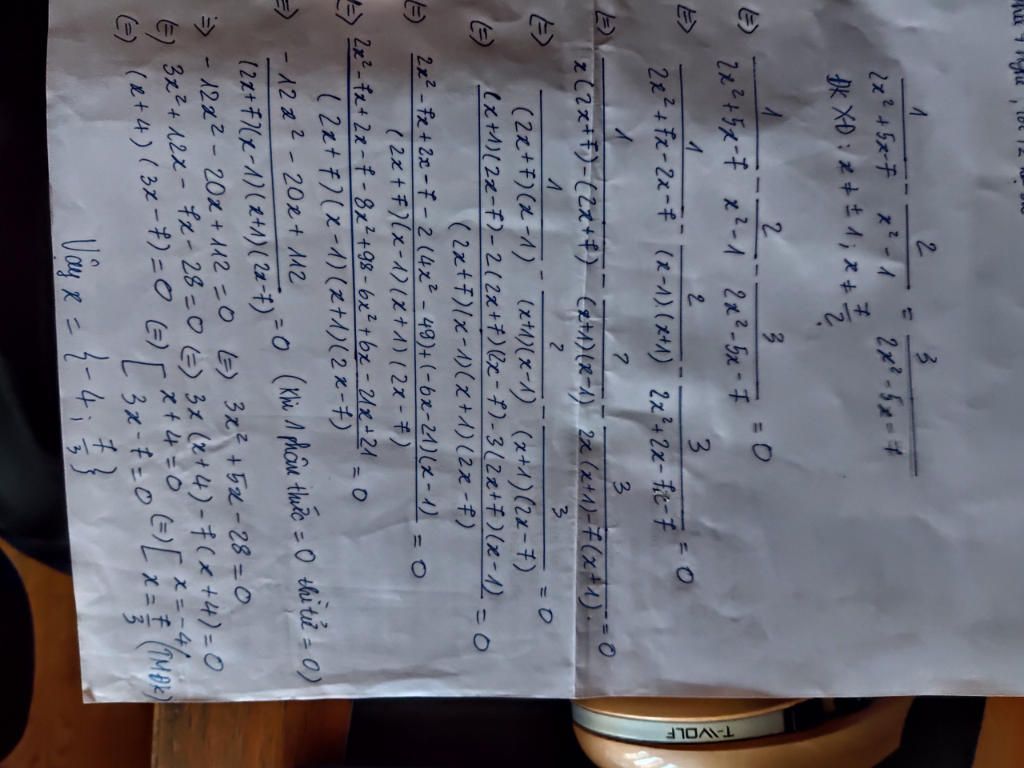 1/(2x²+5x-7) - 2/(x²-1) = 3/(2x²-5x-7)
ĐKXĐ: x ≠ ±1; x ≠ 7/2.
(=) 1/(2x²+5x-7) - 2/(x²-1) - 3/(2x²-5x-7) = 0
(=) 1/(2x²+7x-2x-7) - 2/((x-1).(x+1)) - 3/(2x²+2x-7x-7) = 0
(=) 1/(x(2x+7)-(2x+7)) - 2/((x+1)(x-1)) - 3/(2x(x+1)-7(x+1)) = 0
(=) 1/((2x+7)(x-1)) - 2/((x+1)(x-1)) - 3/((x+1)(2x-7)) = 0
(=) ((x+1)(2x-7)-2(2x+7)(2x-7)-3(2x+7)(x-1))/((2x+7)(x-1)(x+1)(2x-7)) = 0
(=) (2x²-7x+2x-7-2(4x²-49)+(-6x-21)(x-1))/((2x+7)(x-1)(x+1)(2x-7)) = 0
(=) (2x²-7x+2x-7-8x²+98-6x²+6x-21x+21)/((2x+7)(x-1)(x+1)(2x-7)) = 0
(=) (-12x²-20x+112)/((2x+7)(x-1)(x+1)(2x-7)) = 0 (Khi 1 phân thức = 0 thì tử = 0)
=) -12x²-20x+112=0 (=) 3x²+5x-28=0
(=) 3x²+12x-7x-28=0 (=) 3x(x+4)-7(x+4)=0
(=) (x+4)(3x-7)=0 (=) [x+4=0; 3x-7=0 (=) [x=-4; x=7/3 (TMĐK)
Vậy x = {-4; 7/3}
T-WOLF